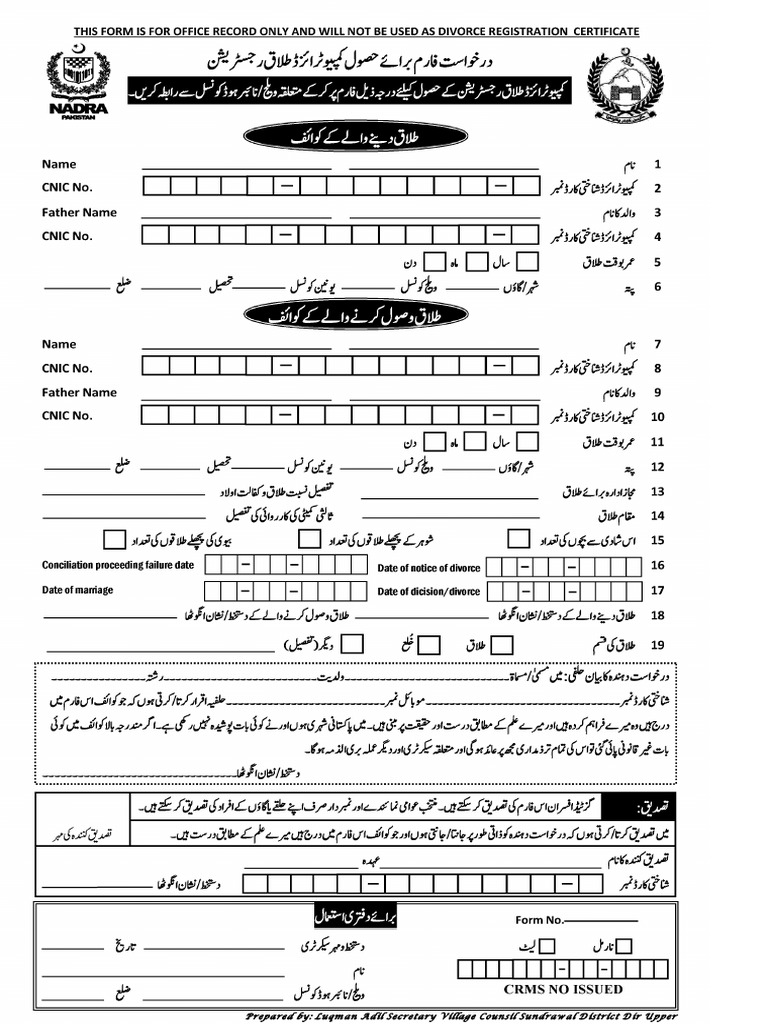 THIS FORM IS FOR OFFICE RECORD ONLY AND WILL NOT BE USED AS DIVORCE REGISTRATION CERTIFICATE
درخواست فارم برائے حصول کمپیوٹرائزڈ طلاق رجسٹریشن
NADRA
PAKISTAN
کمپیوٹرائزڈ طلاق رجسٹریشن کے حصول کیلئے درجہ ذیل فارم پر کر کے متعلقہ ویلج/نائبر ہوڈ کونسل سے رابطہ کریں۔
طلاق دینے والے کے کوائف
Name نام 1
CNIC No. کمپیوٹرائزڈ شناختی کارڈ نمبر 2
Father Name والد کا نام 3
CNIC No. کمپیوٹرائزڈ شناختی کارڈ نمبر 4
5 عمر بوقت طلاق سال ماہ دن
6 پتہ شہر/گاؤں ویلج کونسل یونین کونسل تحصیل ضلع
طلاق وصول کرنے والے کے کوائف
Name نام 7
CNIC No. کمپیوٹرائزڈ شناختی کارڈ نمبر 8
Father Name والد کا نام 9
CNIC No. کمپیوٹرائزڈ شناختی کارڈ نمبر 10
11 عمر بوقت طلاق سال ماہ دن
12 پتہ شہر/گاؤں ویلج کونسل یونین کونسل تحصیل ضلع
13 مجاز ادارہ برائے طلاق تفصیل نسبت طلاق و کفالت اولاد
14 مقام طلاق ثالثی کمیٹی کی کارروائی کی تفصیل
15 اس شادی سے بچوں کی تعداد شوہر کے پچھلے طلاقوں کی تعداد بیوی کی پچھلے طلاقوں کی تعداد
Conciliation proceeding failure date Date of notice of divorce 16
Date of marriage Date of dicision/divorce 17
18 طلاق دینے والے کے دستخط/نشان انگوٹھا طلاق وصول کرنے والے کے دستخط/نشان انگوٹھا
19 طلاق کی قسم طلاق خُلع دیگر (تفصیل)
درخواست دہندہ کا بیان حلفی: میں مسمیٰ/مسماۃ ولدیت رشتہ
شناختی کارڈ نمبر موبائل نمبر حلفیہ اقرار کرتا/کرتی ہوں کہ جو کوائف اس فارم میں
درج ہیں وہ میرے فراہم کردہ ہیں اور میرے علم کے مطابق درست اور حقیقت پر مبنی ہیں۔ میں پاکستانی شہری ہوں اور نے کوئی بات پوشیدہ نہیں رکھی ہے۔ اگر مندرجہ بالا کوائف میں کوئی
بات غیر قانونی پائی گئی تو اس کی تمام تر ذمداری مجھ پر عائد ہوگی اور متعلقہ سیکرٹری اور دیگر عملہ بری الذمہ ہوگا۔
دستخط/نشان انگوٹھا
تصدیق: گزٹیڈ افسران اس فارم کی تصدیق کر سکتے ہیں۔ منتخب عوامی نمائندے اور نمبردار صرف اپنے حلقے یا گاؤں کے افراد کی تصدیق کر سکتے ہیں۔
میں تصدیق کرتا/کرتی ہوں کہ درخواست دہندہ کو ذاتی طور پر جانتا/جانتی ہوں اور جو کوائف اس فارم میں درج ہیں میرے علم کے مطابق درست ہیں۔
تصدیق کنندہ کی مہر
تصدیق کنندہ کا نام عہدہ
شناختی کارڈ نمبر دستخط/نشان انگوٹھا
برائے دفتری استعمال
Form No.
نارمل لیٹ
CRMS NO ISSUED
دستخط و مہر سیکرٹری تاریخ
نام
ویلج/نائبر ہوڈ کونسل ضلع
Prepared by: Luqman Adil Secretary Village Counsil Sundrawal District Dir Upper